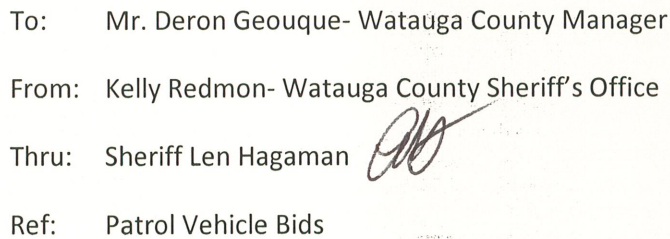 To: Mr. Deron Geouque- Watauga County Manager
From: Kelly Redmon- Watauga County Sheriff's Office
Thru: Sheriff Len Hagaman
Ref: Patrol Vehicle Bids